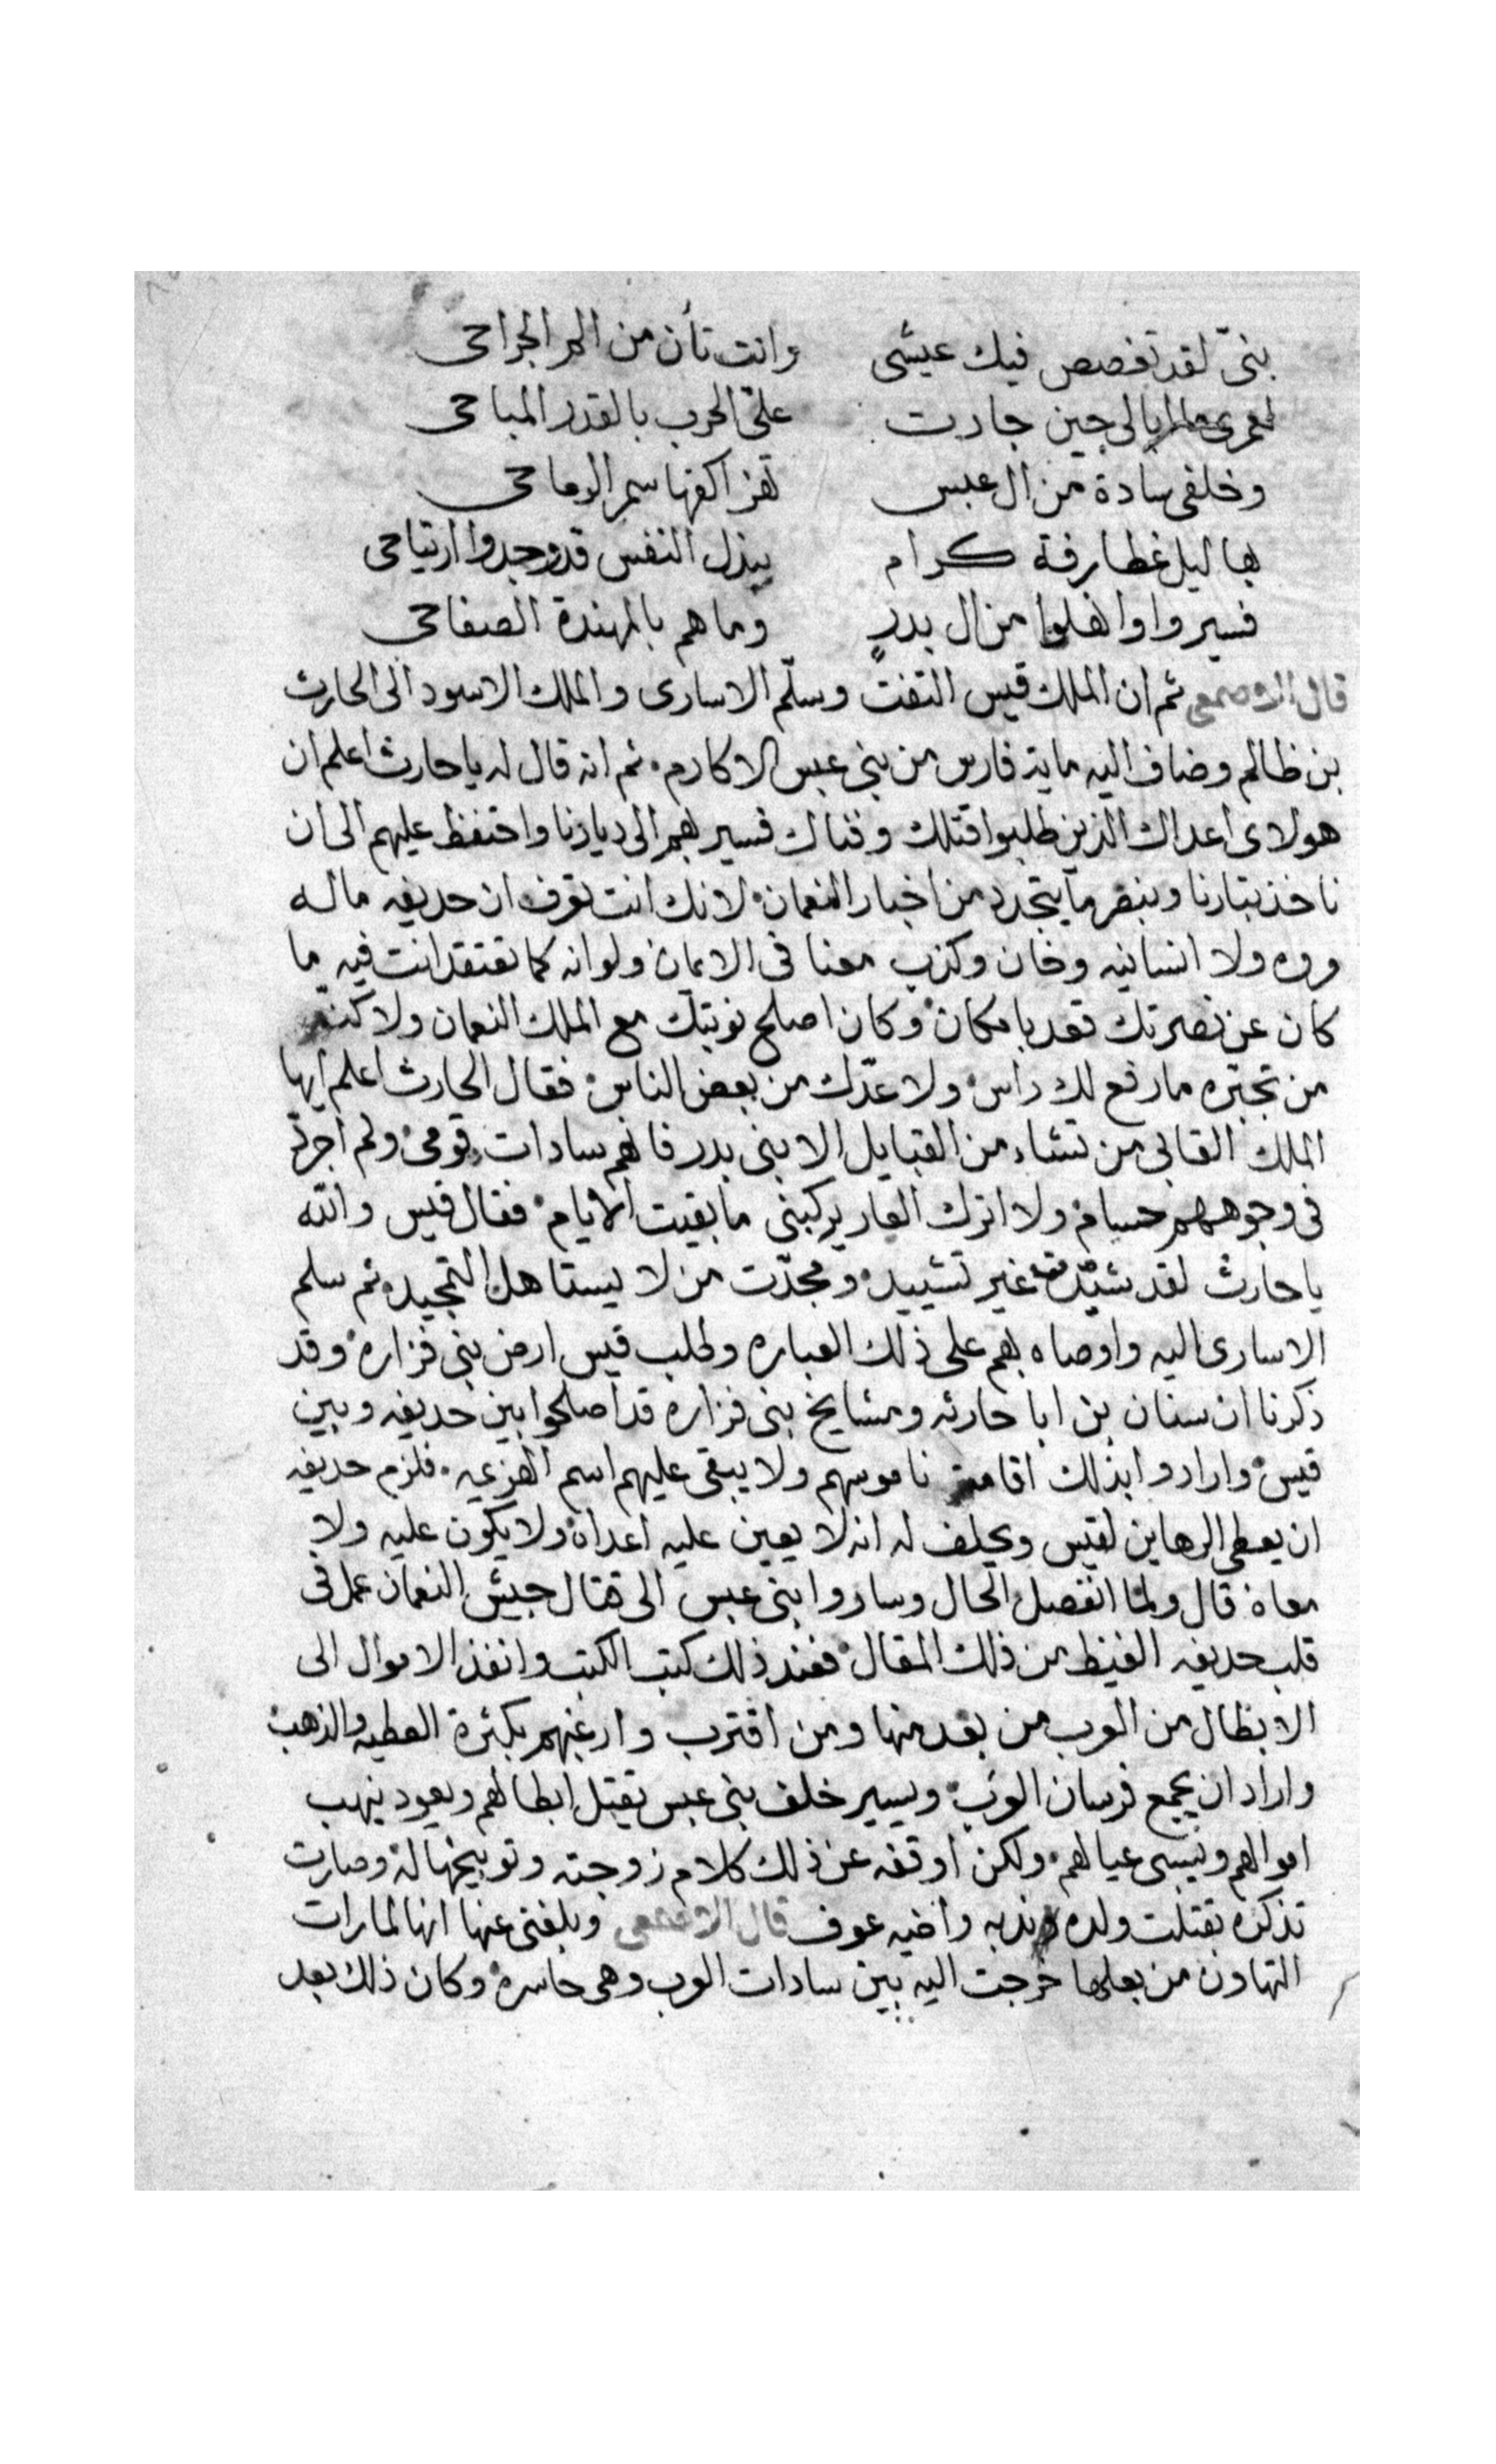 بنيّ لقد تغصص فيك عيشى وانت تأن من الم الجراحى
لعمرى ما ابالى حين جارت علىّ الحرب بالقدر المباحى
وخلفى سادة من ال عبس تهز اكفها سمر الرماحى
بهاليل غطارفة كرام ببذل النفس قد وجدوا ارتياحى
فسيروا وا من ال بدرٍ وما هم بالمهندة الصفاحى
قال الاصمعى ثم ان الملك قيس التفت وسلّم الاسارى والملك الاسود الى الحارث
بن ظالم وضاف اليه ماية فارس من بنى عبس الاكارم ثم انه قال له يا حارث اعلم ان
هولاى اعداك الذين طلبوا قتلك وفناك فسير بهم الى ديارنا واحتفظ عليهم الى ان
ناخذ بتارنا وننظر ما يتجدد من اخبار النعمان لانك انت تعرف ان حديفه ماله
مروه ولا انسانيه وخان وكذب معنا فى الايمان ولو انه كما تعتقد انت فيه ما
كان عن نصرتك قعد بامكان وكان اصلح نوبتك مع الملك النعمان ولاكنه
من تجبّره ما رفع لك راس ولا عدّك من بعض الناس فقال الحارث اعلم ايها
الملك القابى من تشاء من القبايل الا بنى بدر فانهم سادات قومى ولم اجرد
فى وجوههم حسام ولا اترك العار يركبنى ما بقيت الايام فقال قيس والله
يا حارث لقد شيّدت غير تشييد ومجدّت من لا يستاهل التمجيد ثم سلم
الاسارى اليه واوصاه بهم على ذلك العباره وطلب قيس ارض بنى فزاره وقد
ذكرنا ان سنان بن ابا حارثه ومشايخ بنى فزاره قد اصلحوا بين حديفه وبين
قيس وارادوا بذلك اقامة ناموسهم ولا يبقى عليهم اسم الهزيمه فلزم حديفه
ان يعطى الرهاين لقيس ويحلف له انه لا يعين عليه اعداه ولا يكون عليه ولا
معاه قال ولما انفصل الحال وساروا بنى عبس الى قتال جيش النعمان عمل فى
قلب حديفه الغيظ من ذلك المقال فعند ذلك كتب الكتب وانفذ الاموال الى
الابطال من العرب من بعد منها ومن اقترب وارغبهم بكثرة العطيه والذهب
واراد ان يجمع فرسان العرب ويسير خلف بنى عبس يقتل ابطالهم ويعود ينهب
اموالهم ويسبى عيالهم ولكن اوقفه عن ذلك كلام زوجته وتوبيخها له وصارت
تذكره بقتلت ولده ندبه واخيه عوف قال الاصمعى وبلغنى عنها انها لما رات
التهاون من بعلها خرجت اليه بين سادات العرب وهى حاسره وكان ذلك بعد